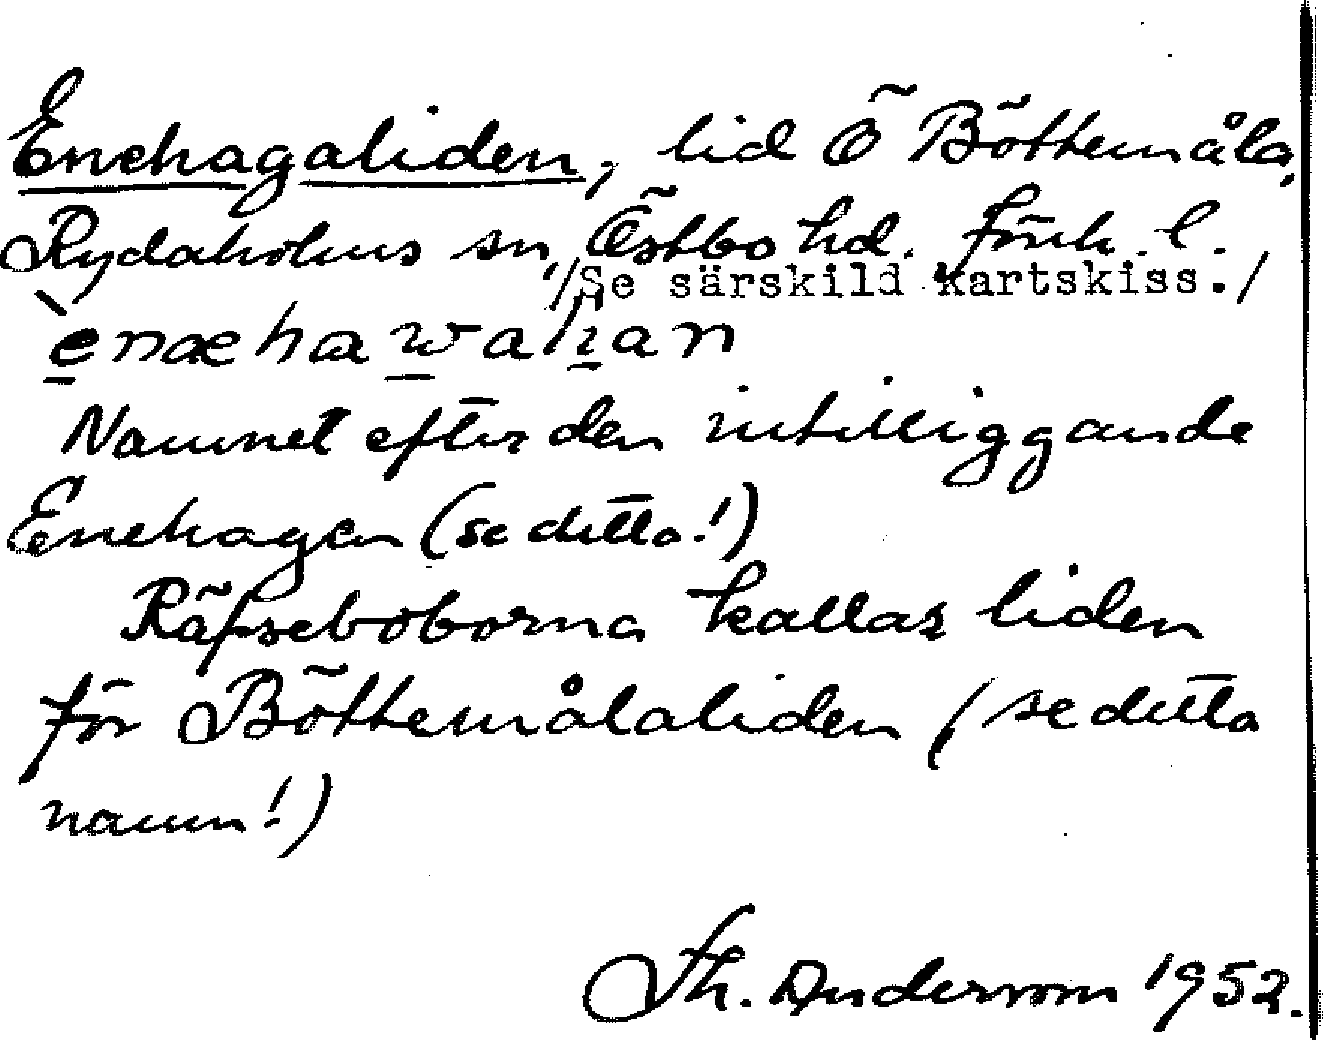 Enehagaliden, lid Ö Böttemåla,
Rydaholms sn, Östbo hd. Jönk. l.
/Se särskild kartskiss./
Namnet efter den intilliggande
Enehagen (se detta!)
Räfseboborna kallar liden
för Böttemålaliden (se detta
namn!)
Th. Andersson 1952.